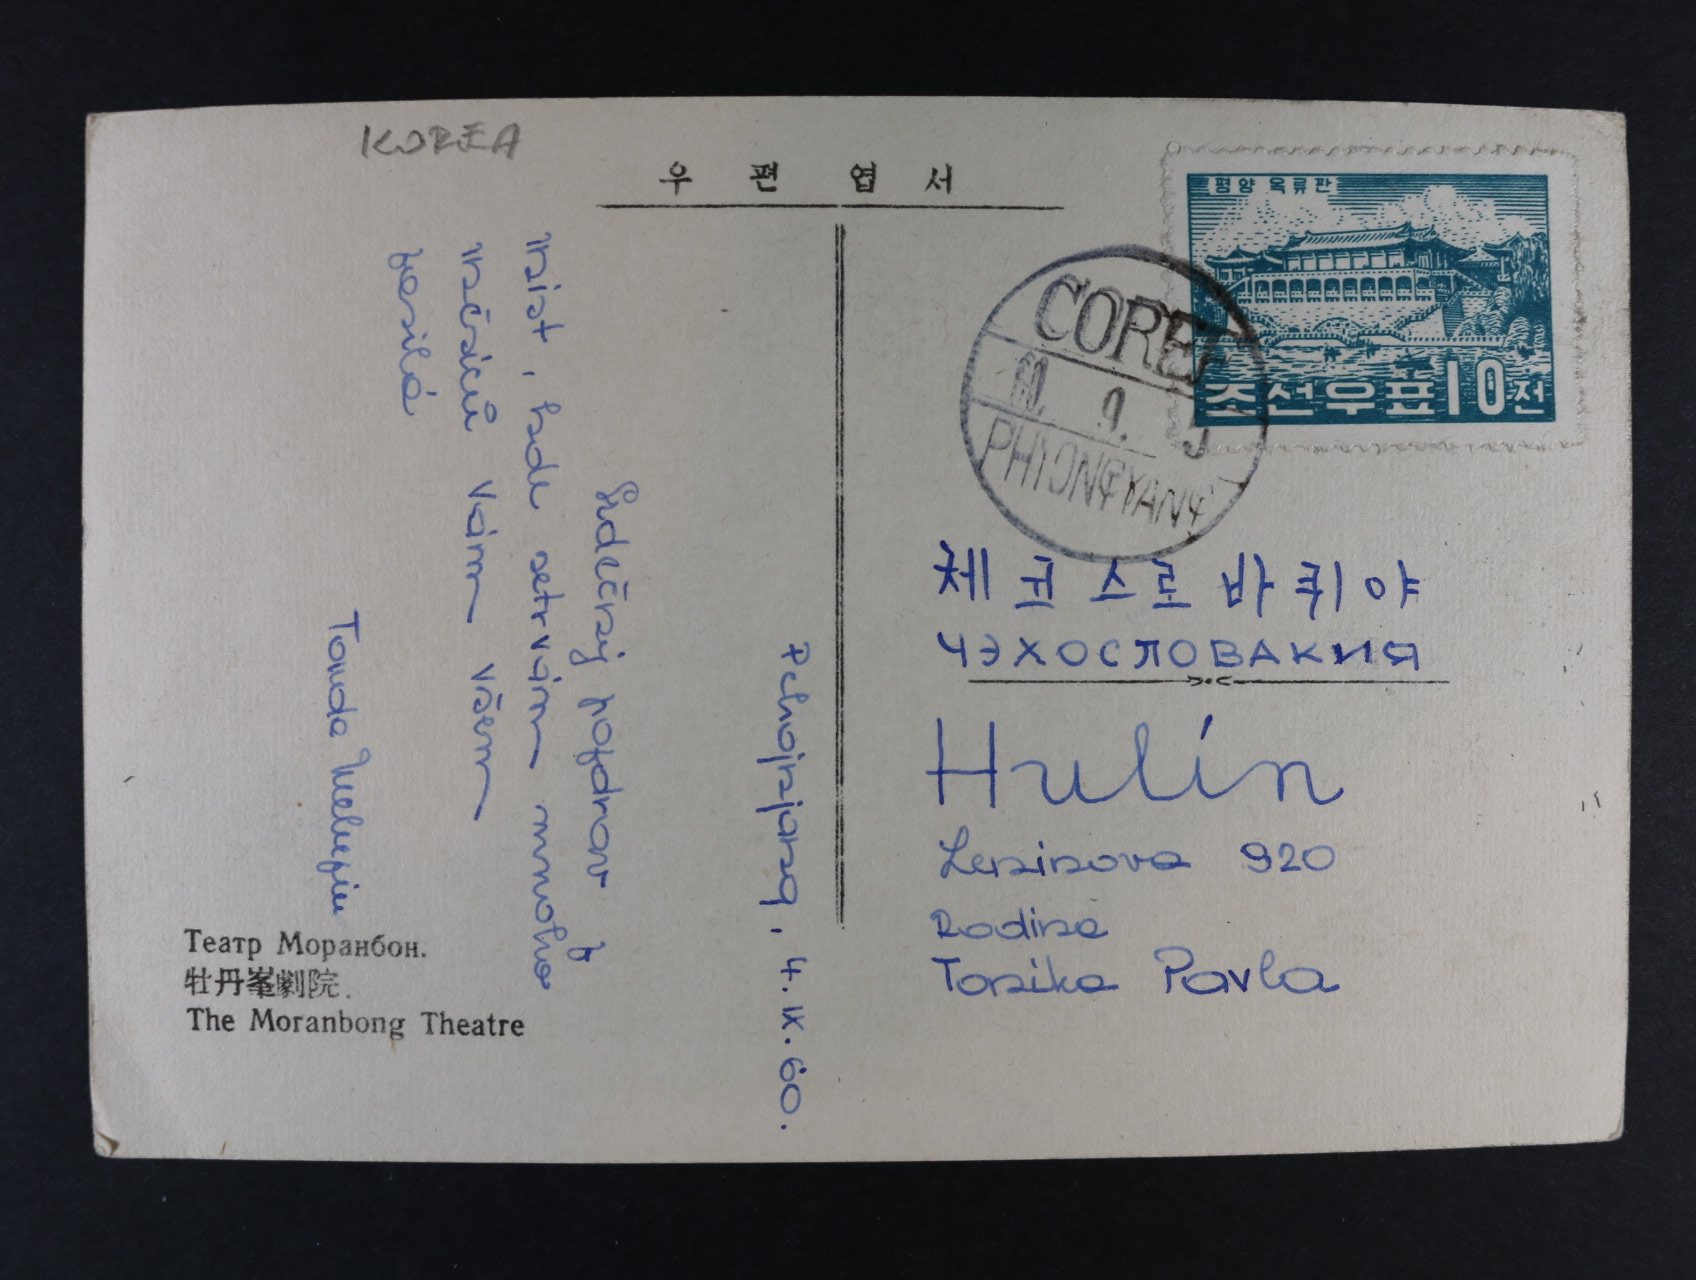 KOREA
우편엽서
평양 옥류관
조선우표 10전
COREE
60. 9. 5
PHYONGYANG
체코스로바퀴야
ЧЭХОСЛОВАКИЯ
Hulín
Leninova 920
Rodina
Tonika Pavla
Pchojnjang, 4. IX. 60.
Srdečný pozdrav z
míst, kde setrvám mnoho
měsíců Vám všem
posílá
Tonda
Театр Моранбон.
牡丹峯劇院.
The Moranbong Theatre